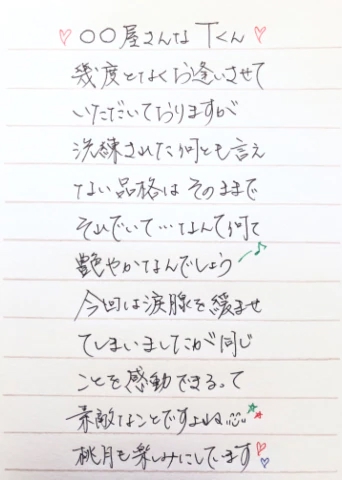 ♡〇〇屋さんな Tくん♡
幾度となくお逢いさせて
いただいておりますが
洗練された何とも言え
ない品格は そのままで
それでいて…なんて何て
艶やかなんでしょう♪
今回は涙腺を緩ませ
てしまいましたが同じ
ことを感動できるって
素敵なことですよね☺☆★
桃月も楽しみにしています♡♡